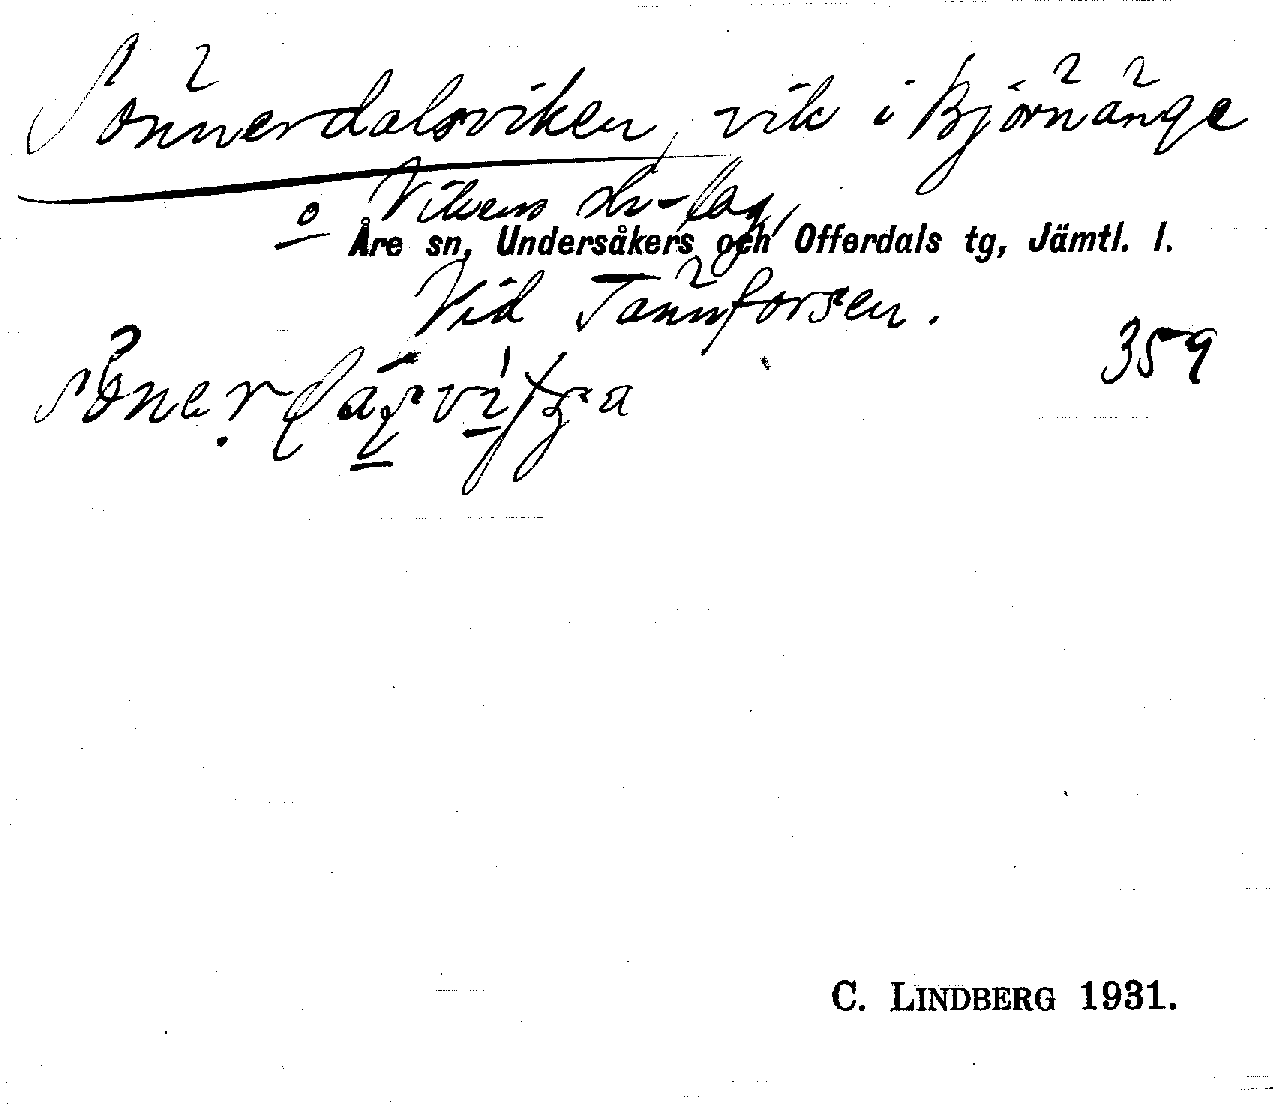 Sönnerdalsviken, vik i Björnänge
o Vikens sk-lag,
Åre sn, Undersåkers och Offerdals tg, Jämtl. l.
Vid Tännforsen.
359
C. LINDBERG 1931.